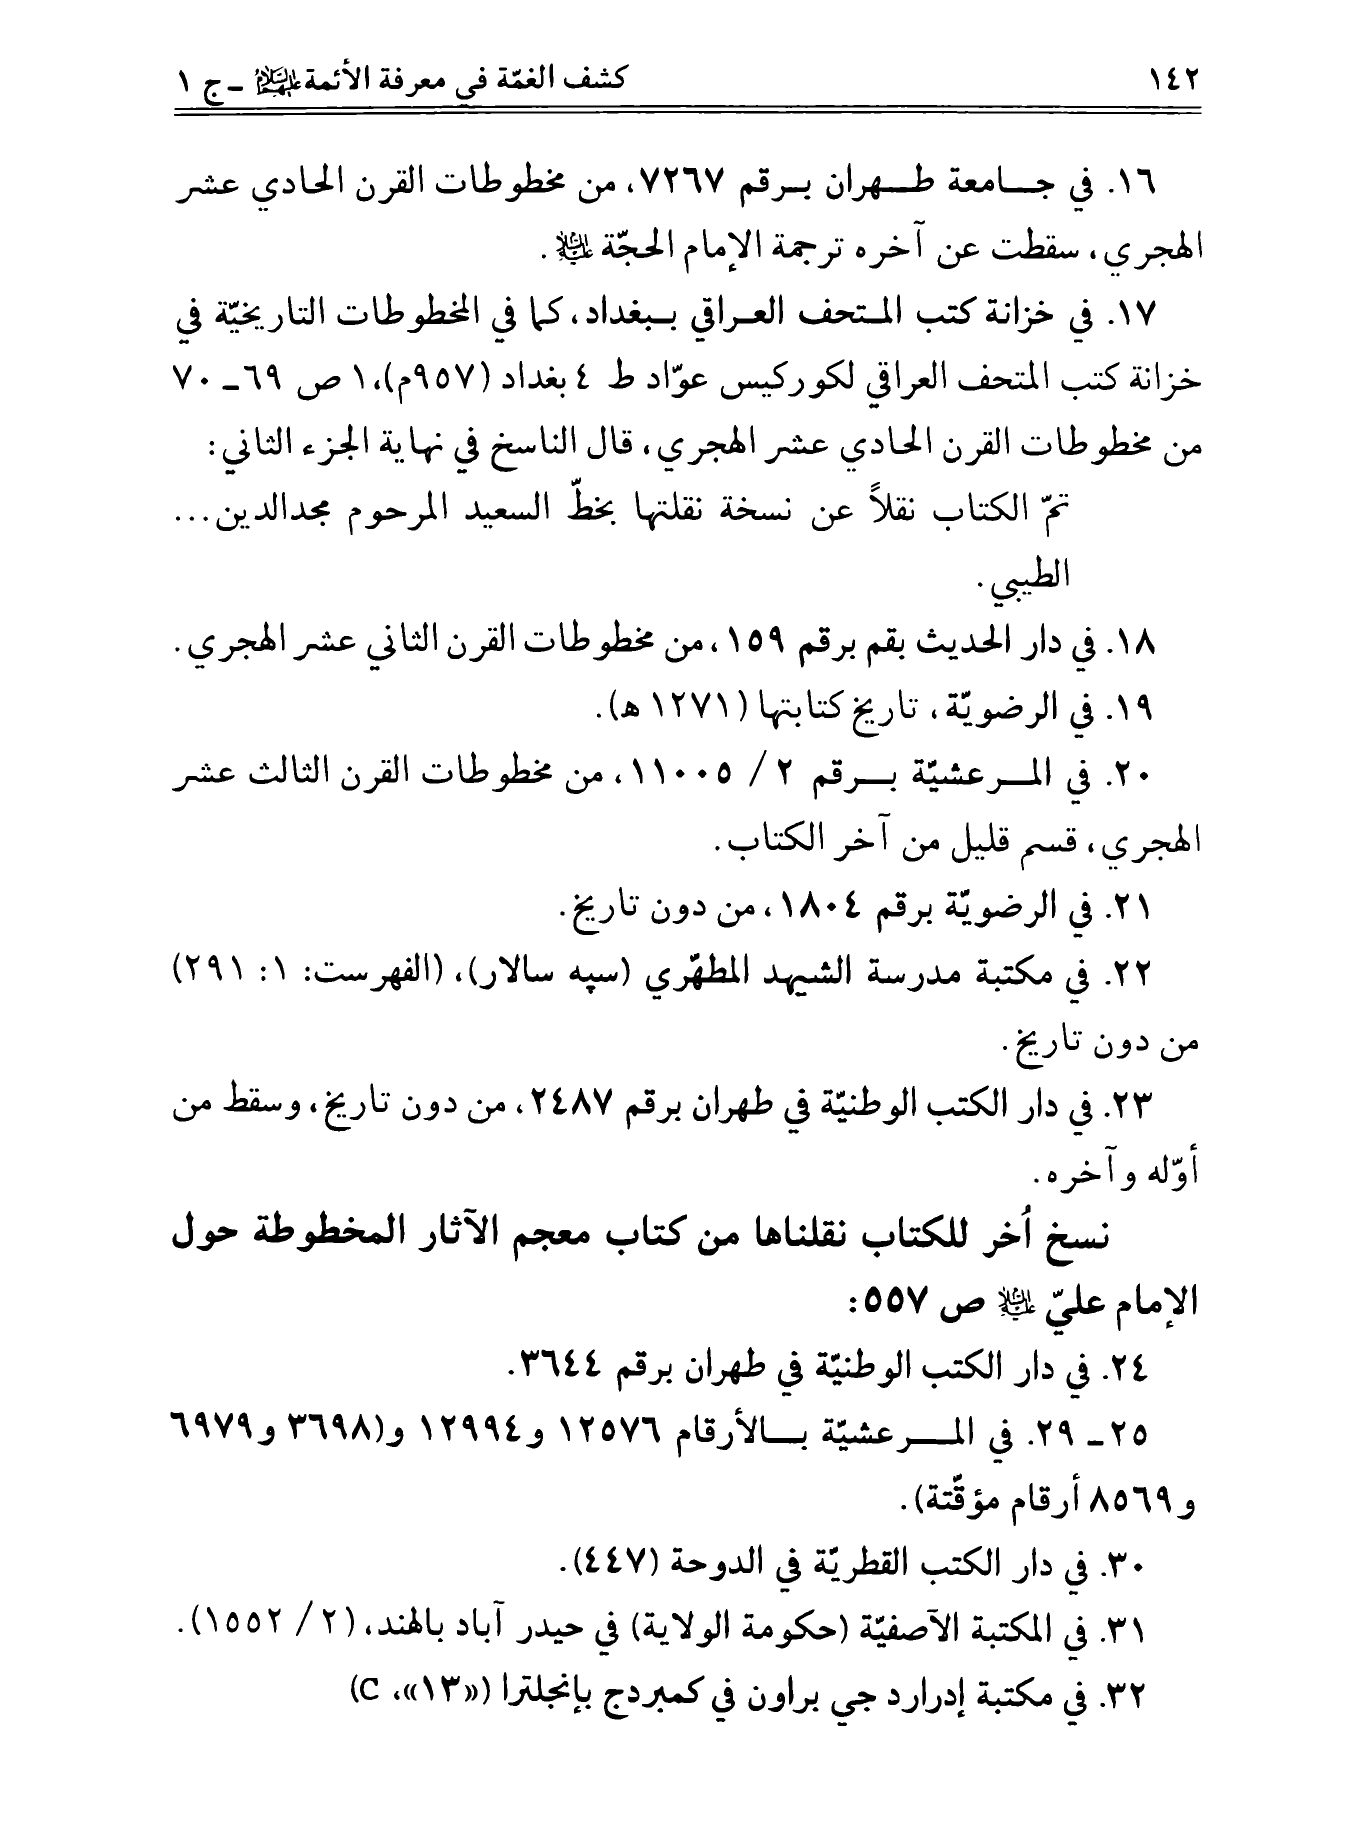 ١٤٢ كشف الغمّة في معرفة الأئمة عليهم السلام ـ ج ١
١٦. في جامعة طهران برقم ٧٢٦٧، من مخطوطات القرن الحادي عشر
الهجري، سقطت عن آخره ترجمة الإمام الحجّة عليه السلام.
١٧. في خزانة كتب المتحف العراقي ببغداد، كما في المخطوطات التاريخيّة في
خزانة كتب المتحف العراقي لكوركيس عوّاد ط ٤ بغداد (٩٥٧م)، ١ ص ٦٩ـ ٧٠
من مخطوطات القرن الحادي عشر الهجري، قال الناسخ في نهاية الجزء الثاني:
تمّ الكتاب نقلاً عن نسخة نقلتها بخطّ السعيد المرحوم مجدالدين...
الطيبي.
١٨. في دار الحديث بقم برقم ١٥٩، من مخطوطات القرن الثاني عشر الهجري.
١٩. في الرضويّة، تاريخ كتابتها (١٢٧١ ه‍).
٢٠. في المرعشيّة برقم ٢ / ١١٠٠٥، من مخطوطات القرن الثالث عشر
الهجري، قسم قليل من آخر الكتاب.
٢١. في الرضويّة برقم ١٨٠٤، من دون تاريخ.
٢٢. في مكتبة مدرسة الشهيد المطهّري (سپه سالار)، (الفهرست: ١: ٢٩١)
من دون تاريخ.
٢٣. في دار الكتب الوطنيّة في طهران برقم ٢٤٨٧، من دون تاريخ، وسقط من
أوّله وآخره.
نسخ أُخر للكتاب نقلناها من كتاب معجم الآثار المخطوطة حول
الإمام عليّ عليه السلام ص ٥٥٧:
٢٤. في دار الكتب الوطنيّة في طهران برقم ٣٦٤٤.
٢٥ـ ٢٩. في المرعشيّة بالأرقام ١٢٥٧٦ و١٢٩٩٤ و(٣٦٩٨ و٦٩٧٩
و٨٥٦٩ أرقام مؤقّتة).
٣٠. في دار الكتب القطريّة في الدوحة (٤٤٧).
٣١. في المكتبة الآصفيّة (حكومة الولاية) في حيدر آباد بالهند، (٢ / ١٥٥٢).
٣٢. في مكتبة إدرارد جي براون في كمبردج بإنجلترا («١٣»، C)